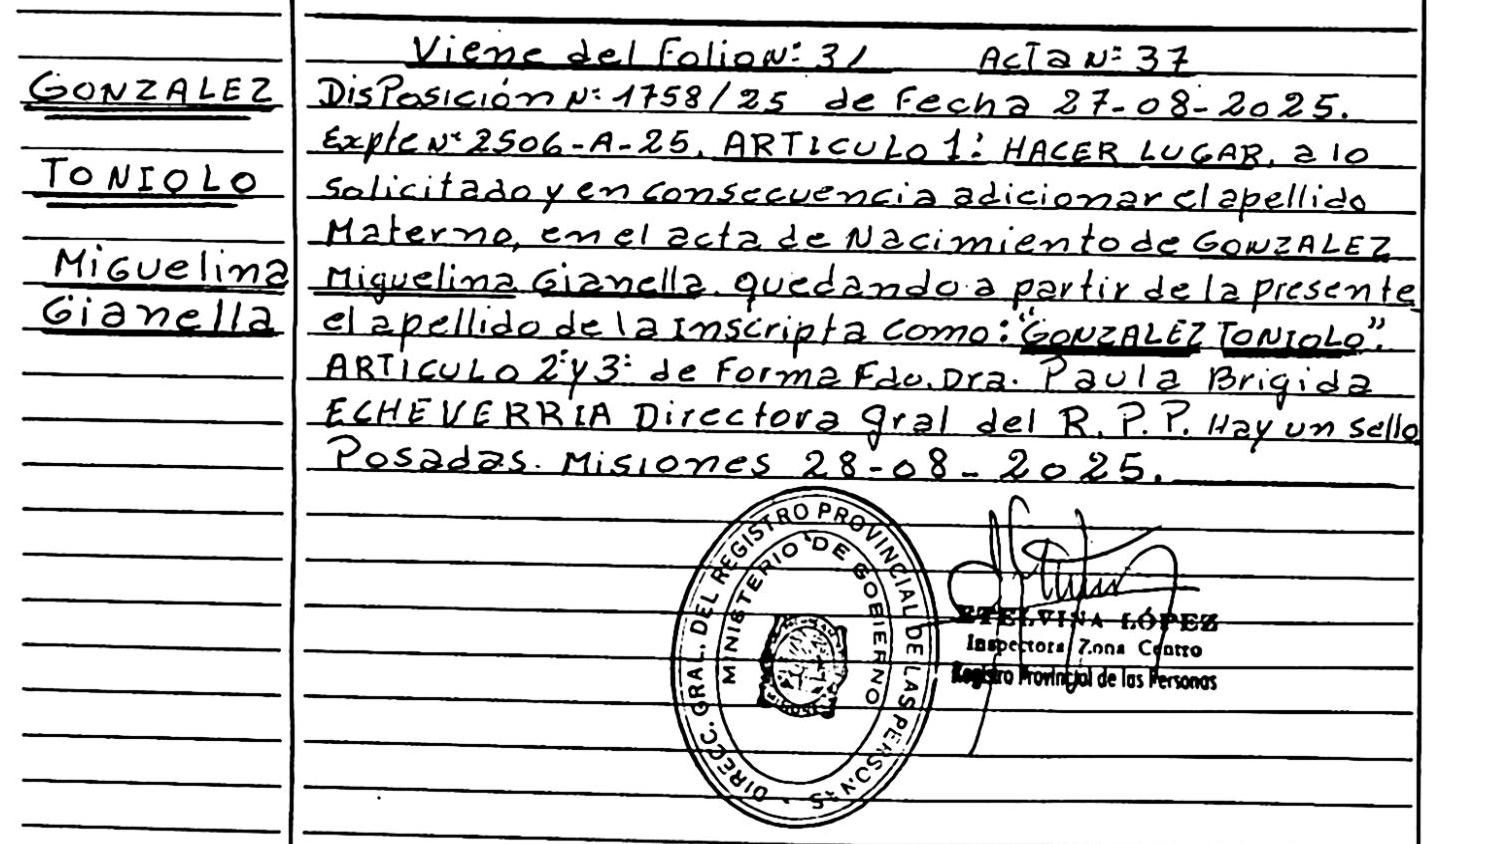 Viene del Folio N°: 31 Acta N°: 37
GONZALEZ
TONIOLO
Miguelina
Gianella
Disposición N°: 1758/25 de Fecha 27-08-2025.
Expte N° 2506-A-25. ARTICULO 1: HACER LUGAR, a lo
solicitado y en consecuencia adicionar el apellido
Materno, en el acta de Nacimiento de GONZALEZ
Miguelina Gianella. quedando a partir de la presente
el apellido de la Inscripta como: "GONZALEZ TONIOLO".
ARTICULO 2° y 3° de Forma Fdo. Dra. Paula Brigida
ECHEVERRIA Directora gral del R. P. P. Hay un sello
Posadas. Misiones 28-08-2025.
DIRECC. GRAL. DEL REGISTRO PROVINCIAL DE LAS PERSONAS
MINISTERIO DE GOBIERNO
ETELVINA LÓPEZ
Inspectora Zona Centro
Registro Provincial de las Personas